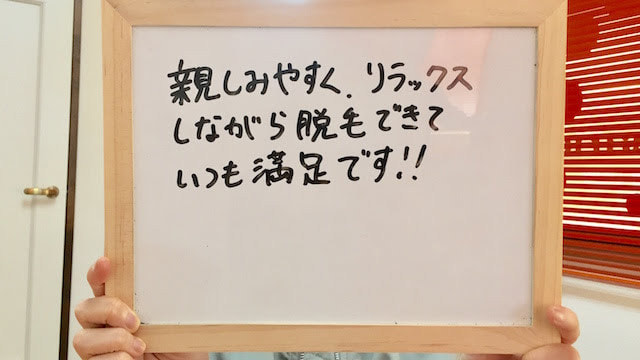 親しみやすく、リラックス
しながら脱毛できて
いつも満足です!!